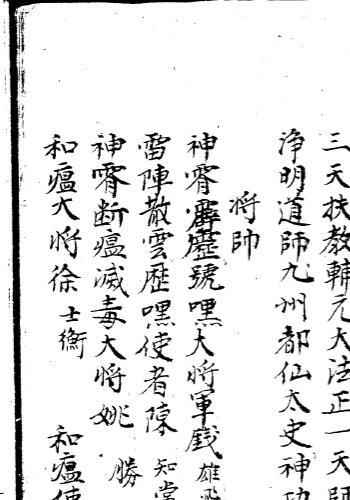 三天扶教輔元大法正一天師
淨明道師九州都仙太史神功
将帥
神霄霹靂號嘿大将軍錢雄飛
雷陣散雲歷嘿使者陳知堂
神霄断瘟滅毒大将姚勝
和瘟大将徐士衡 和瘟使